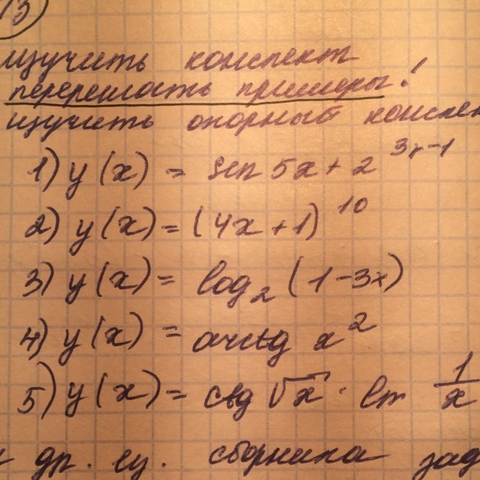 13
изучить конспект
перерешать примеры!
изучить опорный конспек
1) y(x) = sin 5x + 2^(3x-1)
2) y(x) = (4x+1)^10
3) y(x) = log₂ (1-3x)
4) y(x) = arctg x²
5) y(x) = ctg √x · ln 1/x
др. сборника зад